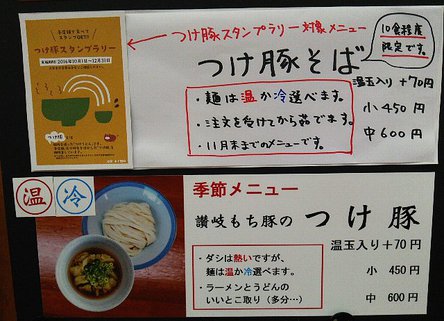 つけ豚スタンプラリー
つけ豚スタンプラリー対象メニュー
10食程度
限定です。
つけ豚そば
温玉入り+70円
・麺は温か冷選べます。
・注文を受けてから茹でます。
・11月末までのメニューです。
小 450円
中 600円
温
冷
季節メニュー
讃岐もち豚の つけ豚
温玉入り+70円
・ダシは熱いですが、
麺は温か冷選べます。
・ラーメンとうどんの
いいとこ取り(多分…)
小 450円
中 600円